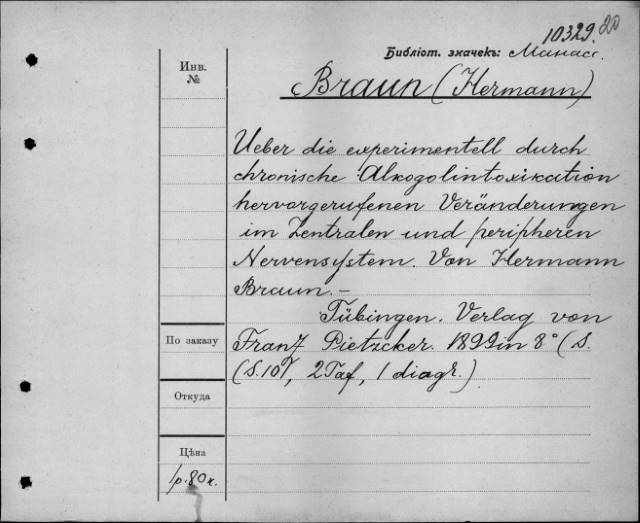 10329. 20
Библіот. значекъ: Манас.
Инв.
№
Braun (Hermann)
Ueber die experimentell durch
chronische Alkogolintoxikation
hervorgerufenen Veränderungen
im Zentralen und peripheren
Nervensystem. Von Hermann
Braun. —
Tübingen. Verlag von
По заказу
Franz Pietzcker. 1899 in 8° (S.
(S. 107, 2 Taf, 1 diagr.)
Откуда
Цѣна
1 р. 80 к.